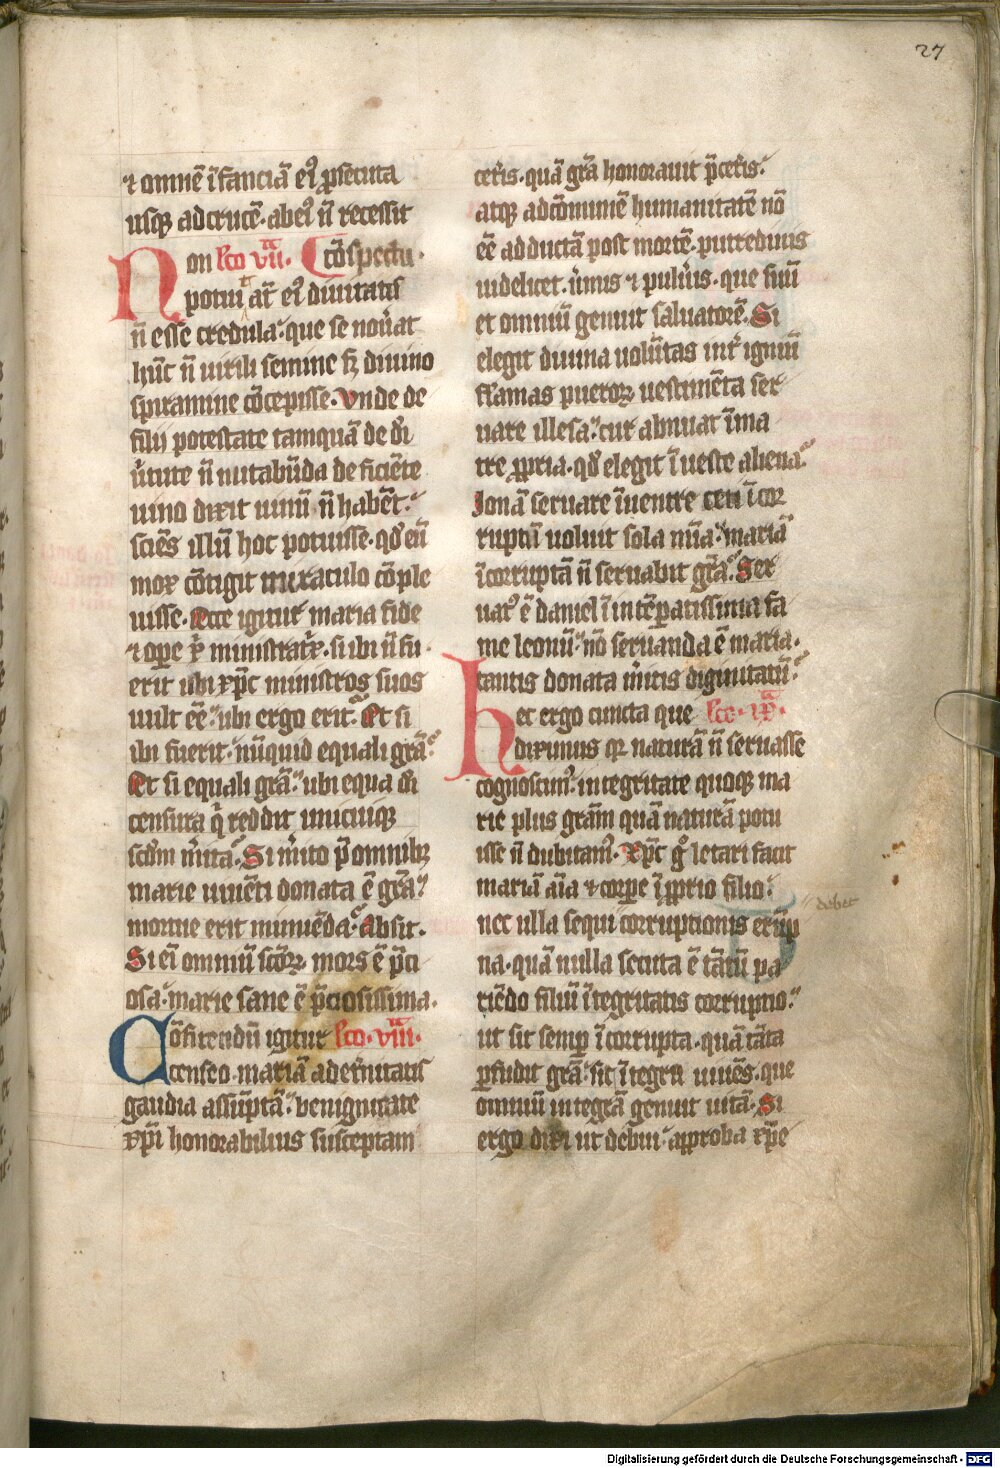 27
⁊ omnē īfanciā eiꝰ ꝓsecuta
usqꝫ ad crucē. ab eo n̄ recessit
Non lc̄o vii. Cōspectu.
potuit at̄ eiꝰ diuitatis
n̄ esse credula. que se nou̾at
hūc n̄ uirili semine sꝫ diuino
spiramine cōcepisse. Vnde de
filij potestate tamquā de dī
ūtute n̄ nutabūda deficiēte
uino dixit uinū n̄ habēt.
sciēs illū hoc potuisse. qd̕ eū
mox cōtigit miraculo cōple
uisse. Ecce igitur maria fide
⁊ oꝑe xp̄i ministrat̾x. si ibi n̄ fu
erit ubi xp̄c ministros suos
uult eē ubi ergo erit. Et si
ibi fuerit. nūquid equali grā.
Et si equali grā. ubi equa dī
censura q̄ reddit unicuiqꝫ
scd̄m m̄ita. Si m̄ito p̄ omnibꝫ
marie uiuēti donata ē grā.
mortue erit minuēda. Absit.
Si ei̅ omniū scōꝝ mors ē p̄ci
osa. marie sane ē p̄ciosissima.
Cōfitendū igitur lc̄o. viii.
censeo. mariā ad et̾nitatis
gaudia assūptā. benignitate
xp̄i honorabilius susceptam
cet̾is. quā grā honorauit p̄ cet̾is.
atqꝫ ad cōmunē humanitatē nō
eē adductā post mortē. putredinis
uidelicet. u̾mis ⁊ pulu̾is. que suū
et omniū genuit saluatorē. Si
elegit diuina uolūtas int̾ igniū
flamas pueroꝝ uestimēta ser
uare illesa. cur abnuat ī ma
tre ꝓpria. qd̕ elegit ī ueste aliena.
Jonā seruare ī uentre ceti īcor
ruptū uoluit sola mīa. mariā
īcorruptā n̄ seruabit grā. Ser
uatꝰ ē daniel ī intēperatissima fa
me leonū. nō seruanda ē maria.
tantis donata m̄itis dignitatū.
Hec ergo cuncta que lc̄o. ix.
diximus qꝛ naturā n̄ seruasse
cognoscimꝰ. integritate quoqꝫ ma
rie plus grām quā naturā potu
isse n̄ dubitamꝰ. Xp̄c gͦ letari facit
mariā aīa ⁊ corꝑe ī ꝓprio filio.
nec ulla sequi corruptionis erūp
na. quā nulla secuta ē tātū pa
riēdo filiū ītegritatis corruptio.
ut sit semꝑ īcorrupta. quā tāta
ꝑfudit grā. sit ītegra uiuēs. que
omniū integrā genuit uitā. Si
ergo dixi ut debui. approba xp̄e
debet
Digitalisierung gefördert durch die Deutsche Forschungsgemeinschaft - DFG